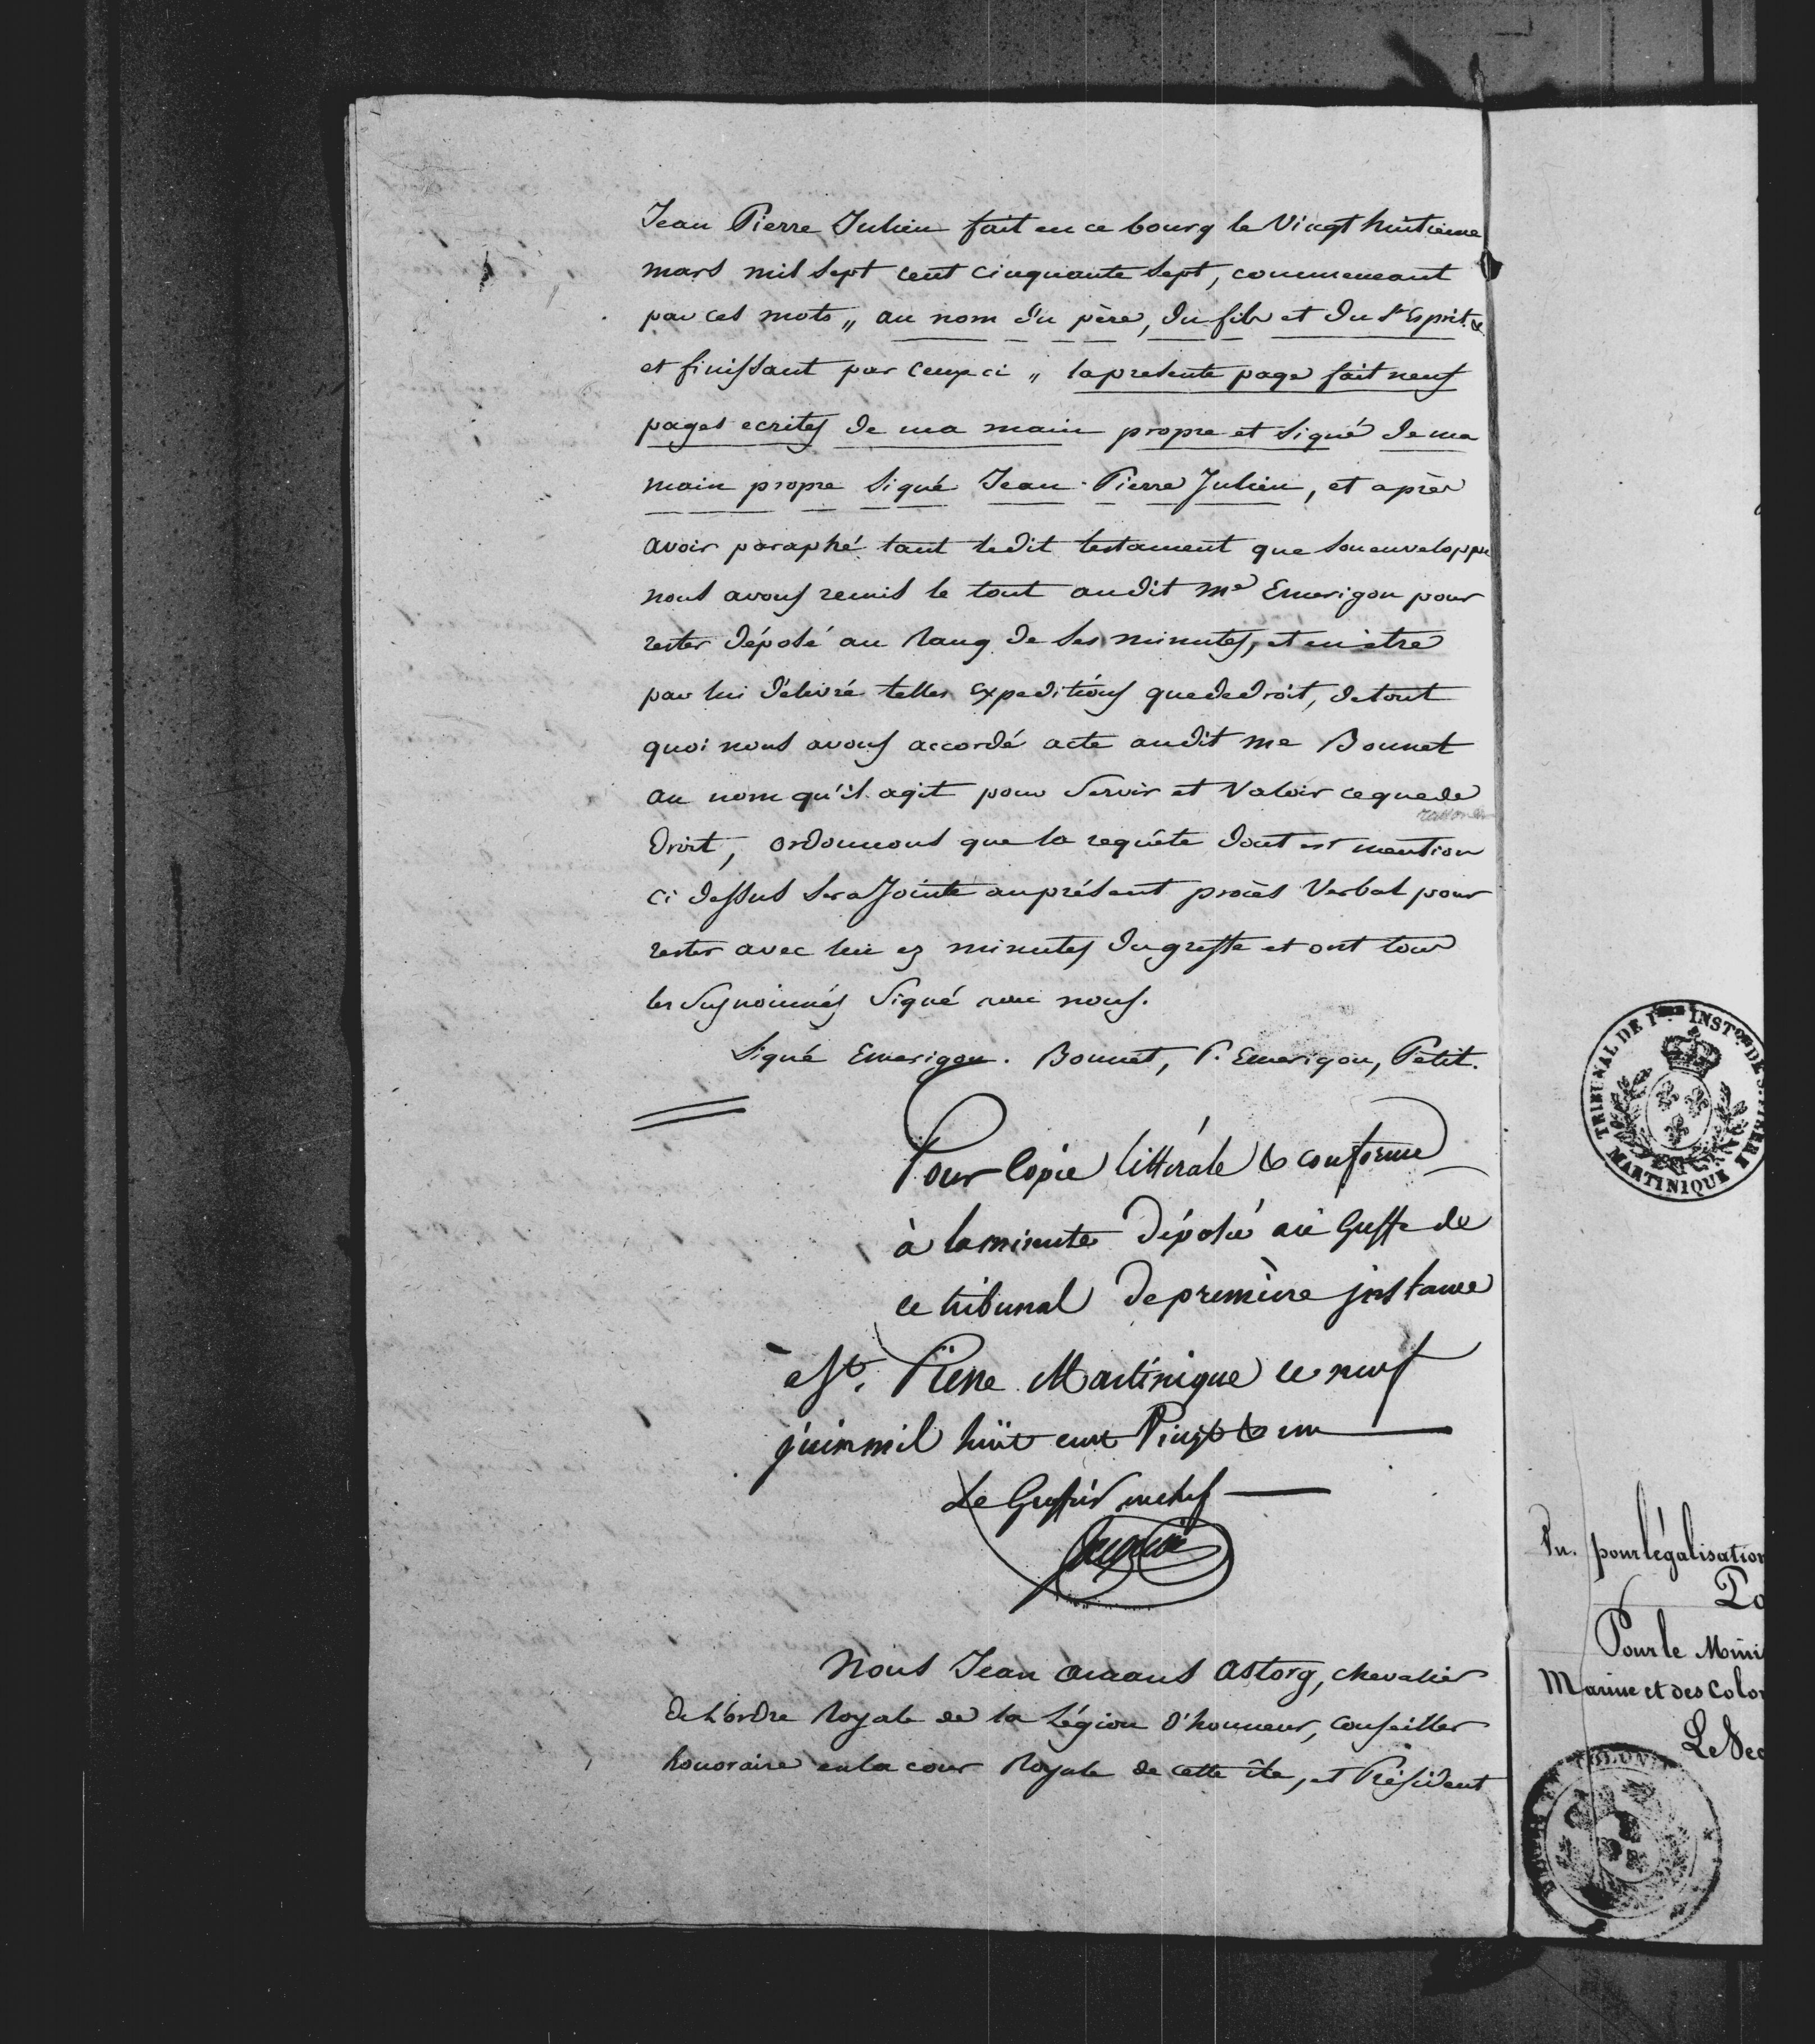 Jean Pierre Julien fait en ce bourg le Vingt huitieme
mars mil Sept cent cinquante Sept, commencant
par ces mots „ au nom du père, du fils et du St Esprit &
et finissant par ceux ci „ la presente page fait neuf
pages ecrites de ma main propre et Signé de ma
main propre Signé Jean Pierre Julien, et après
avoir paraphé tant ledit testament que Son enveloppe
nous avons remis le tout audit Me Emerigon pour
rester déposé au rang de Ses minutes, et en être
par lui délivré telles expeditions que de droit, de tout
quoi nous avons accordé acte audit Me Bonnet
au nom qu'il agit pour Servir et Valoir ce que de
droit, ordonnons que la requête dont est mention
ci dessus Sera Jointe au présent procès Verbal pour
rester avec lui ez minutes du greffe et ont tous
les Susnommés Signé avec nous.
Signé Emerigon. Bonnet, P. Emerigon, Petit.
Pour Copie littérale & conforme
à la minute déposée au Greffe de
ce tribunal de première instance
à St. Pierre Martinique le neuf
juin mil huit cent Vingt & un
Le Greffier en chef
Nous Jean Amans Astorg, chevalier
de L'ordre Royale de la Légion d'honneur, Conseiller
honoraire en la cour Royale de cette île, et Président
TRIBUNAL DE 1ère INSTce DE St PIERRE
MARTINIQUE
Vu pour légalisation
Pour le Mini
Marine et des Colon
Le Sec